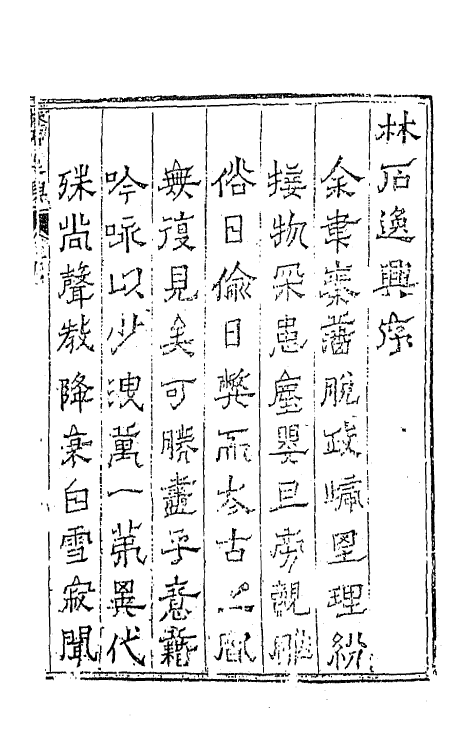 林石逸興序
余聿棄藩脫政歸里理紛
接物深患塵嬰旦旁觀雕
俗日偷日弊而太古之風
無復見矣可勝盡乎意藉
吟咏以少洩萬一第異代
殊尚聲教降衰白雪寂聞